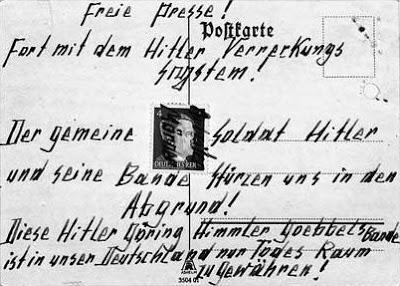 Freie Presse!
Postkarte
Fort mit dem Hitler Verreckungs
System!
Der gemeine Soldat Hitler
und seine Bande Stürzen uns in den
Abgrund!
Diese Hitler Göring Himmler Goebbels Bande
ist in unser Deutschland nur Todes Raum
zu gewähren!
3504 01